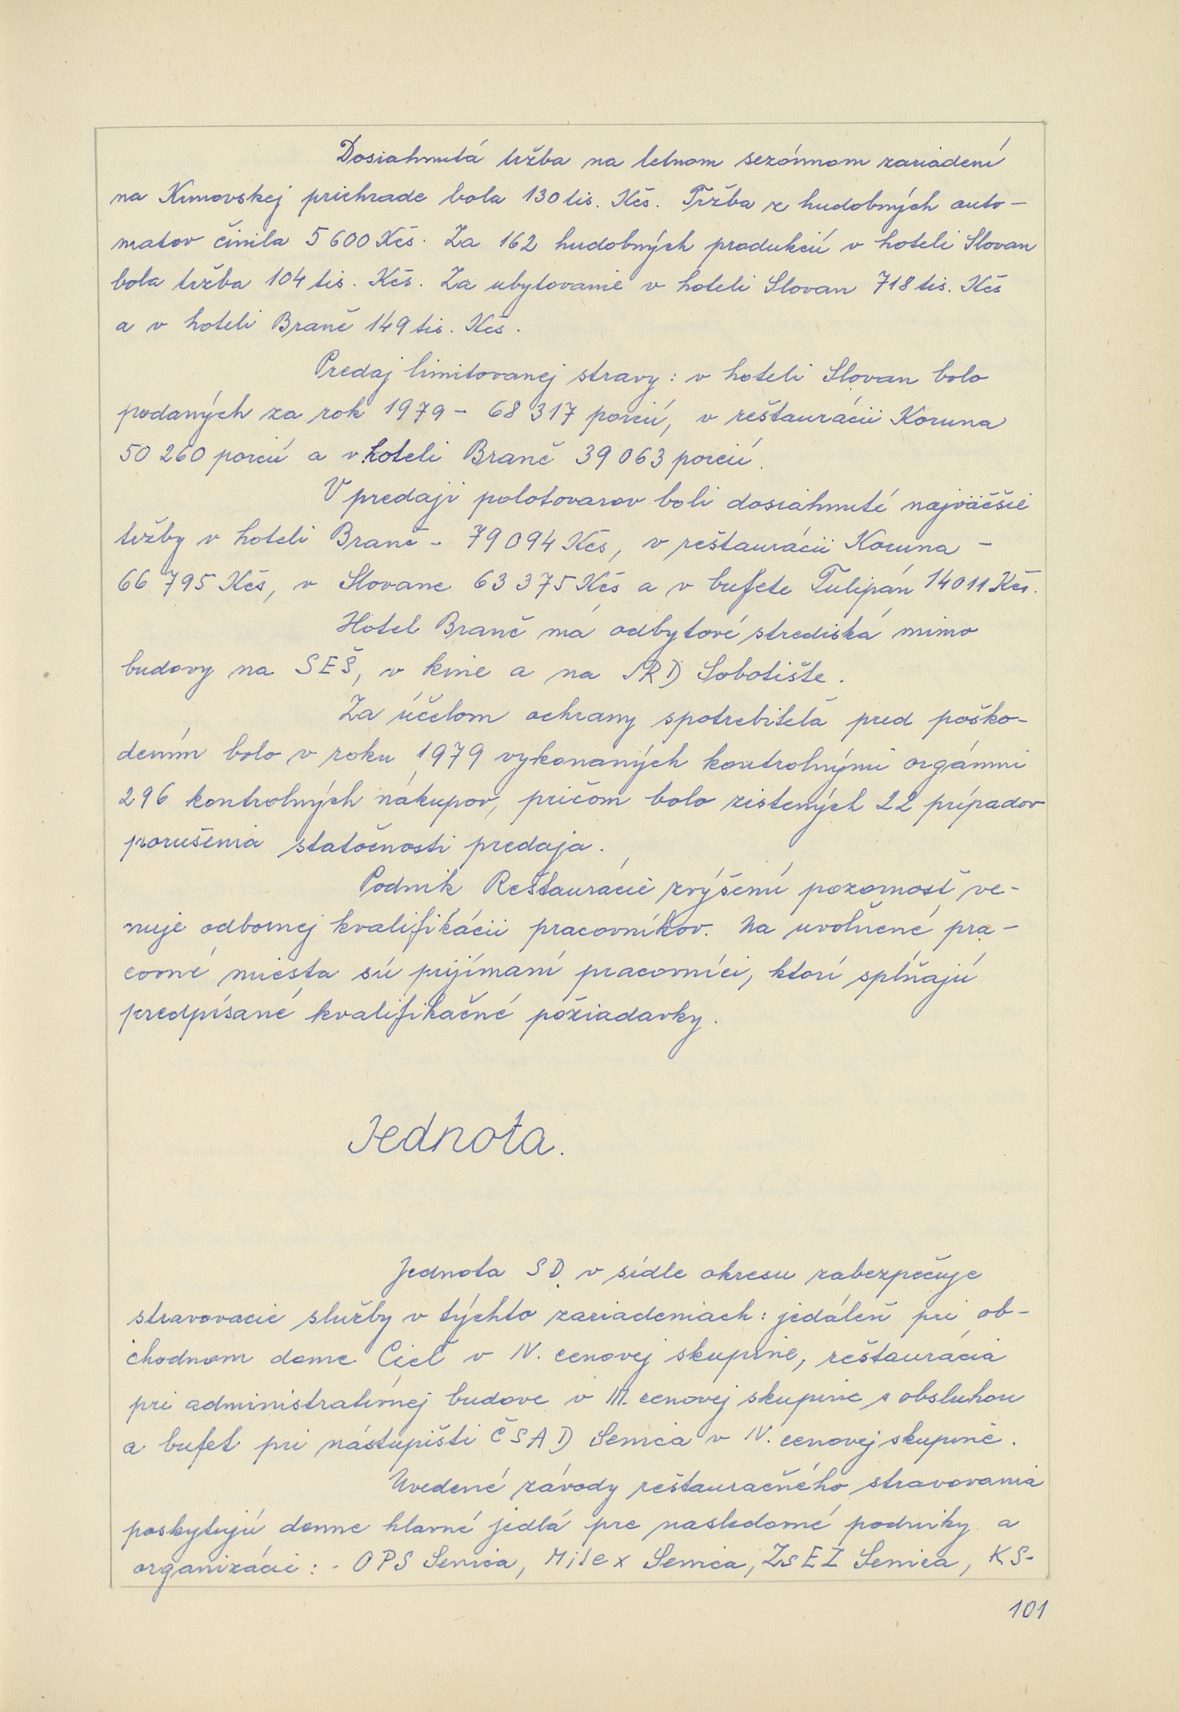 Dosiahnutá tržba na letnom sezónnom zariadení
na Kunovskej priehrade bola 130 tis. Kčs. Tržba z hudobných auto-
matov činila 5 600 Kčs. Za 162 hudobných produkcií v hoteli Slovan
bola tržba 104 tis. Kčs. Za ubytovanie v hoteli Slovan 718 tis. Kčs
a v hoteli Branč 149 tis. Kčs.
Predaj limitovanej stravy: v hoteli Slovan bolo
podaných za rok 1979 - 68 317 porcií, v reštaurácii Koruna
50 260 porcií a v hoteli Branč 39 063 porcií.
V predaji polotovarov boli dosiahnuté najväčšie
tržby v hoteli Branč - 79 094 Kčs, v reštaurácii Koruna -
66 795 Kčs, v Slovane 63 375 Kčs a v bufete Tulipán 14 011 Kčs.
Hotel Branč má odbytové strediská mimo
budovy na SEŠ, v kine a na JRD Sobotište.
Za účelom ochrany spotrebiteľa pred poško-
dením bolo v roku 1979 vykonaných kontrolnými orgánmi
296 kontrolných nákupov, pričom bolo zistených 22 prípadov
porušenia statočnosti predaja.
Podnik Reštaurácie zvýšenú pozornosť ve-
nuje odbornej kvalifikácii pracovníkov. Na uvoľnené pra-
covné miesta sú prijímaní pracovníci, ktorí splňajú
predpísané kvalifikačné požiadavky.
Jednota.
Jednota SD v sídle okresu zabezpečuje
stravovacie služby v týchto zariadeniach: jedáleň pri ob-
chodnom dome Cieľ v IV. cenovej skupine, reštaurácia
pri administratívnej budove v III. cenovej skupine s obsluhou
a bufet pri nástupišti ČSAD Senica v IV. cenovej skupine.
Uvedené závody reštauračného stravovania
poskytujú denne hlavné jedlá pre nasledovné podniky a
organizácie: - OPS Senica, Milex Senica, ZsEZ Senica, KS-
101